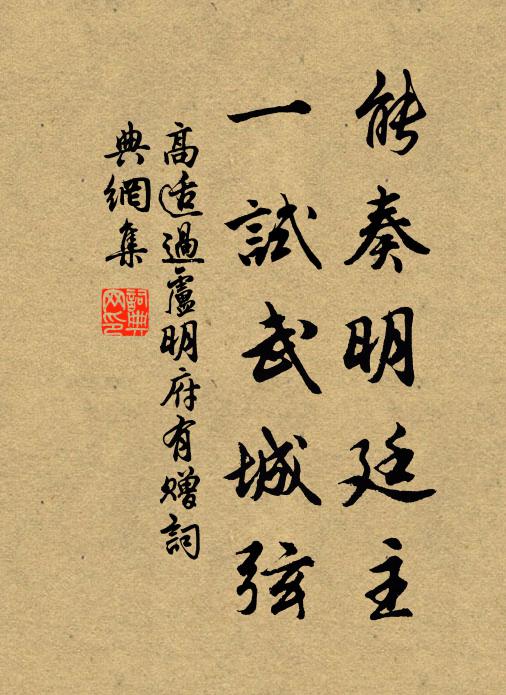 能奏明廷主
一試武城弦
高适過盧明府有贈詞
典網集
詞典
网印